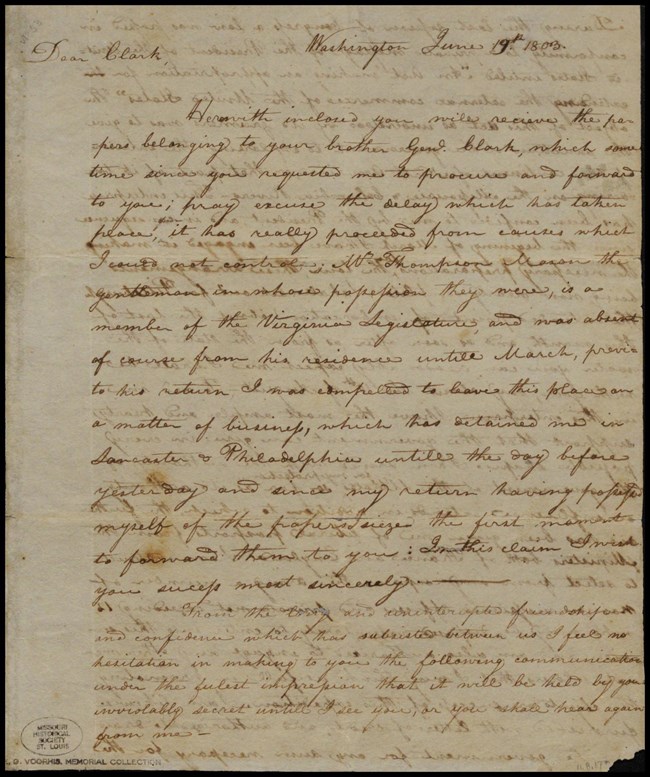 Washington June 19th. 1803.
Dear Clark
Herewith inclosed you will recieve the pa-
pers belonging to your brother Genl. Clark, which some
time since you requested me to procure and forward
to you; pray excuse the delay which has taken
place, it has really proceeded from causes which
I could not control; Mr. Thompson Mason the
gentleman in whose possession they were, is a
member of the Virginia Legislature and was absent
of course from his residence untill March, previ-
to his return I was compelled to leave this place on
a matter of business, which has detained me in
Lancaster & Philadelphia untill the day before
yesterday and since my return having possessed
myself of the papers I seize the first moment
to forward them to you: In this claim I wish
you success most sincerely
From the long and uninterupted friendship
and confidence which has subsisted between us I feel no
hesitation in making to you the following communication
under the fulest impression that it will be held by you
inviolably secret untill I see you, or you shall hear again
from me-
MISSOURI
HISTORICAL
SOCIETY
ST. LOUIS
G. VOORHIS, MEMORIAL COLLECTION